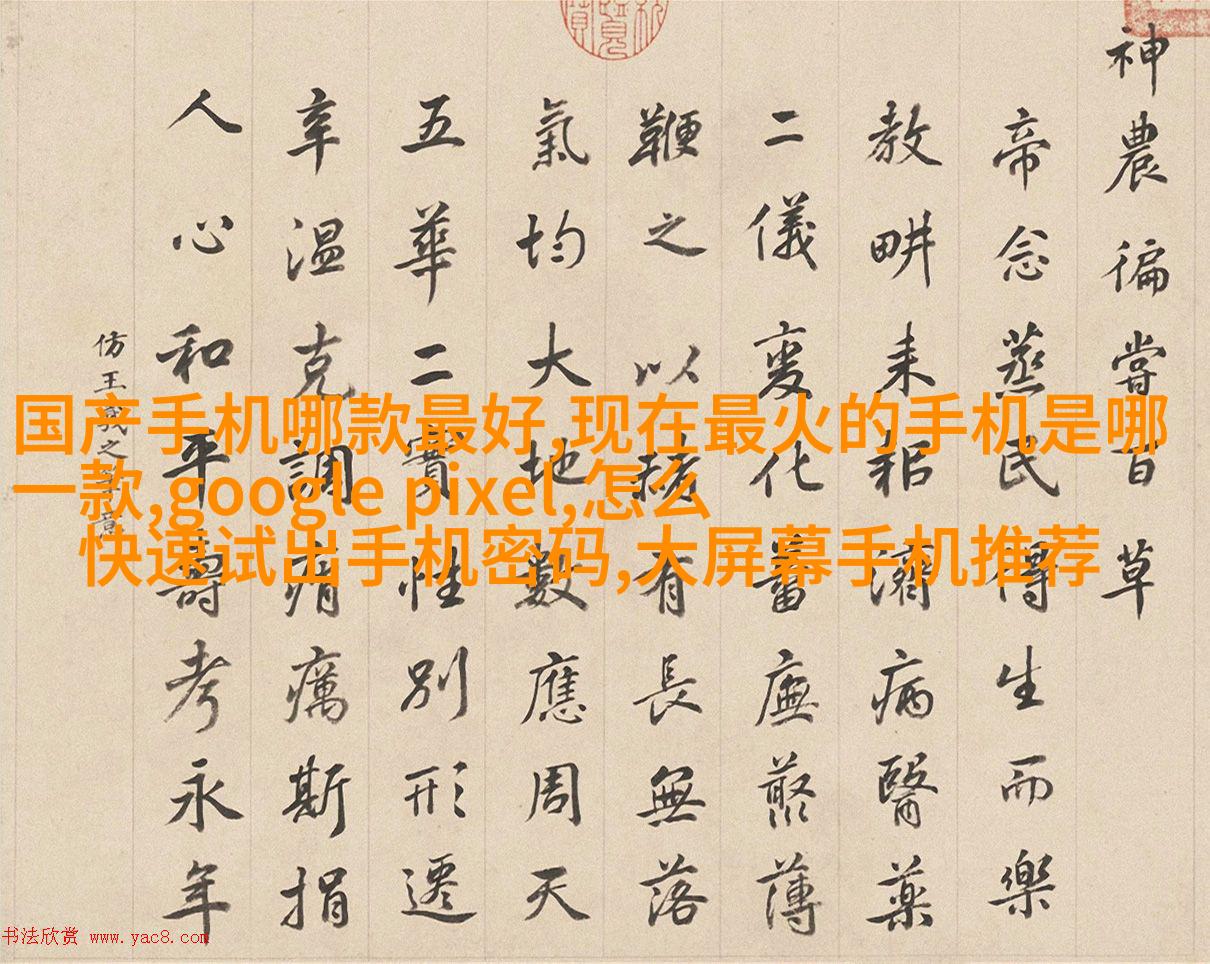 国产手机哪款最好,现在最火的手机是哪
一款,google pixel,怎么
快速试出手机密码,大屏幕手机推荐
神農徧嘗百草
帝念蒸民得生而樂
教畊耒耜濟病醫藥
二儀变化蕃廡藂薄
鞭之以有長無落
氣均大地數應周天
五華二實性別形遷
辛温克調痟癘斯捐
人心和平壽考永年
仿王羲之意
书法欣赏 www.yac8.com